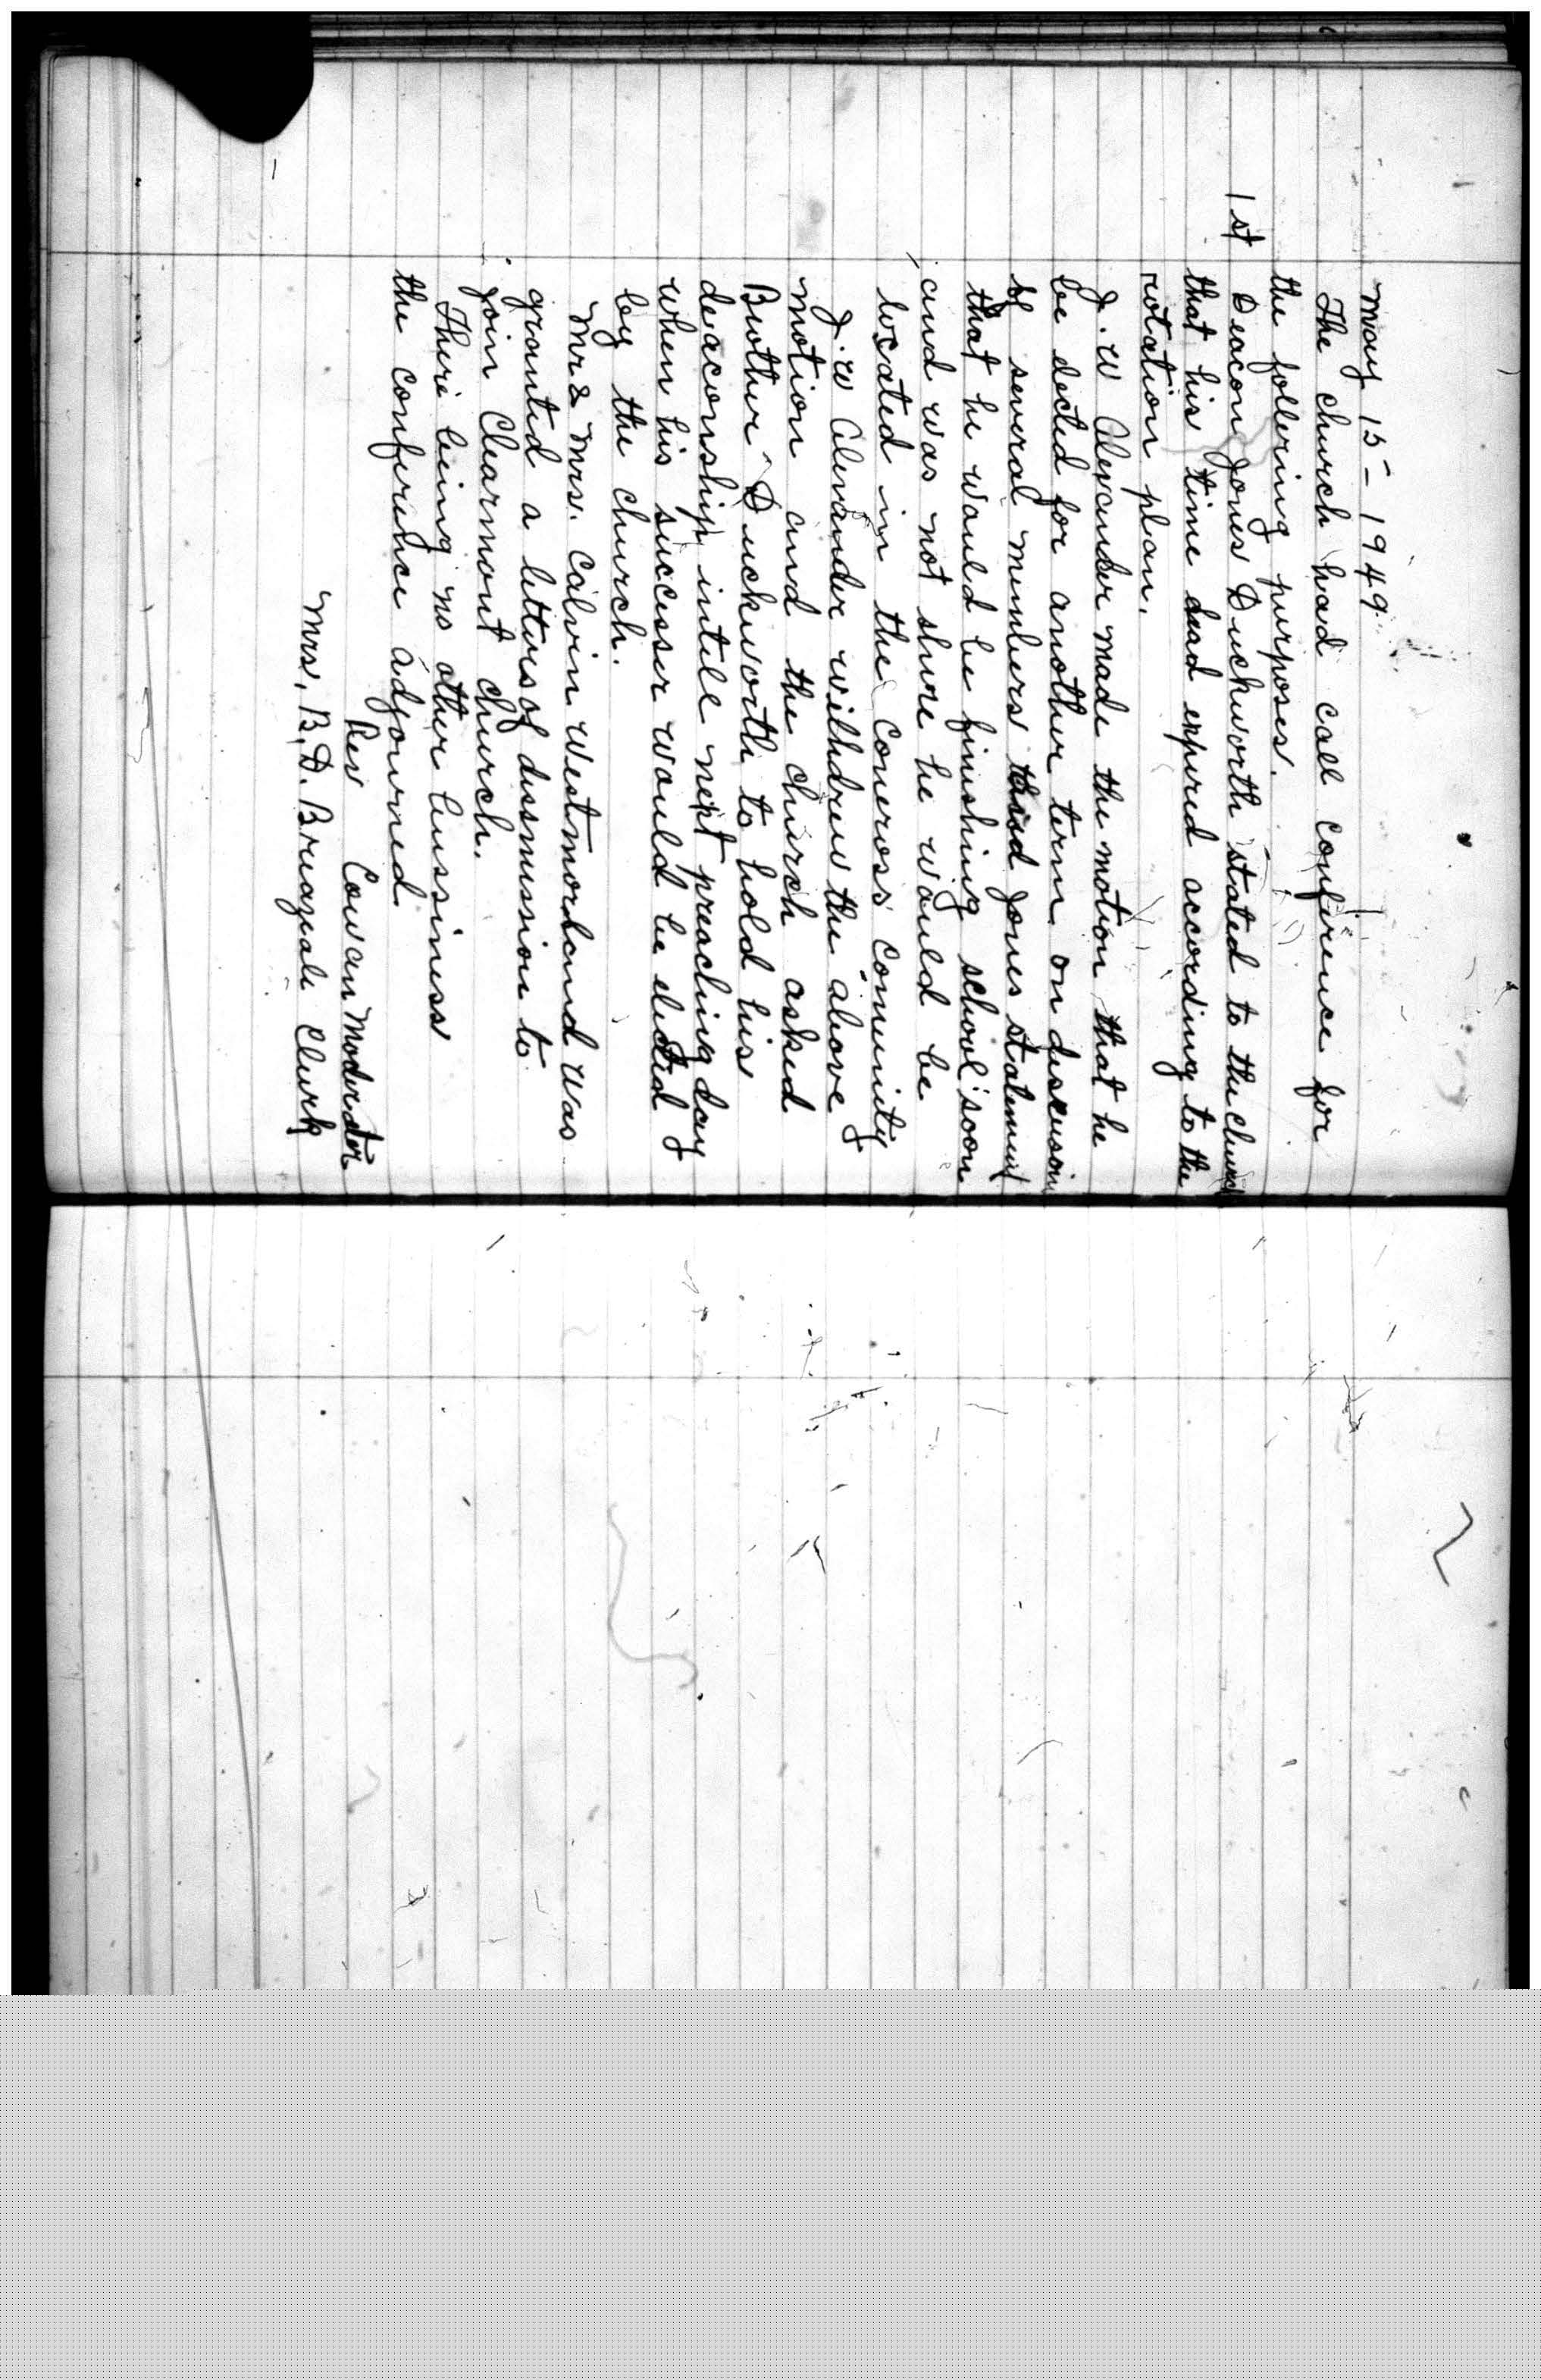 May 15 - 1949
The church had call confirence for
the following purposes.
1st Deacon Jones Duckworth stated to the church
that his time dead expired according to the
rotation plan.
J. W Alexander made the motion that he
be elected for another term on discussion
of several members Jones statement
that he would be finishing school soon
and was not shure he would be
located in the Coneross Comunity
J. W Alexander withdrew the above
motion and the church asked
Brother Duckworth to hold his
deaconship intill next preaching day
when his successer would be elected
by the church.
Mr & Mrs. Calvin Westmorland was
granted a letters of dissmission to
join Clearmont church.
There being no other bussiness
the confirence adjourned
Rev Cowan Moderator
Mrs. B. D. Breazeale Clurk